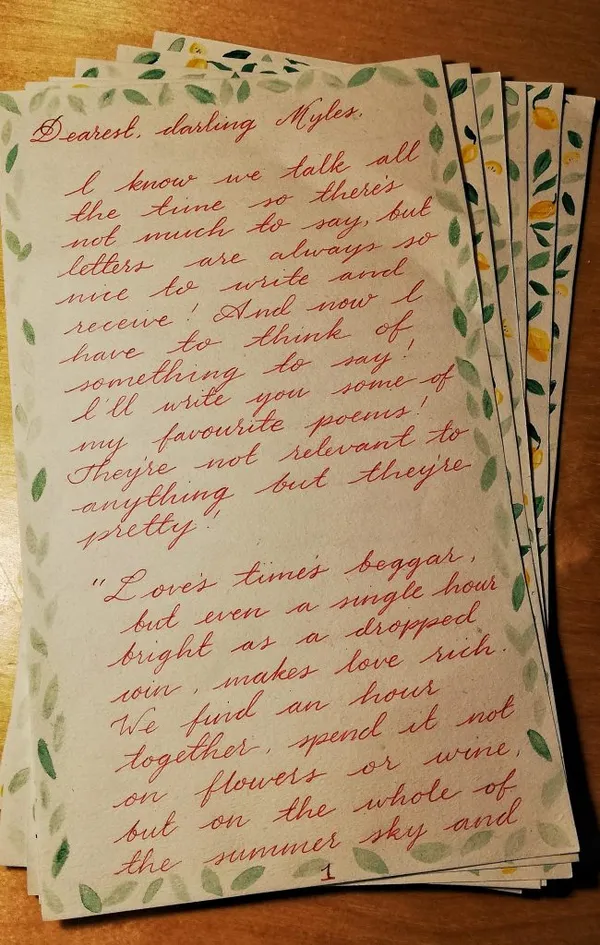 Dearest, darling Myles,
I know we talk all
the time so there's
not much to say, but
letters are always so
nice to write and
receive! And now I
have to think of
something to say!
I'll write you some of
my favourite poems!
They're not relevant to
anything but they're
pretty!
"Love's time's beggar,
but even a single hour
bright as a dropped
coin, makes love rich.
We find an hour
together, spend it not
on flowers or wine,
but on the whole of
the summer sky and
1